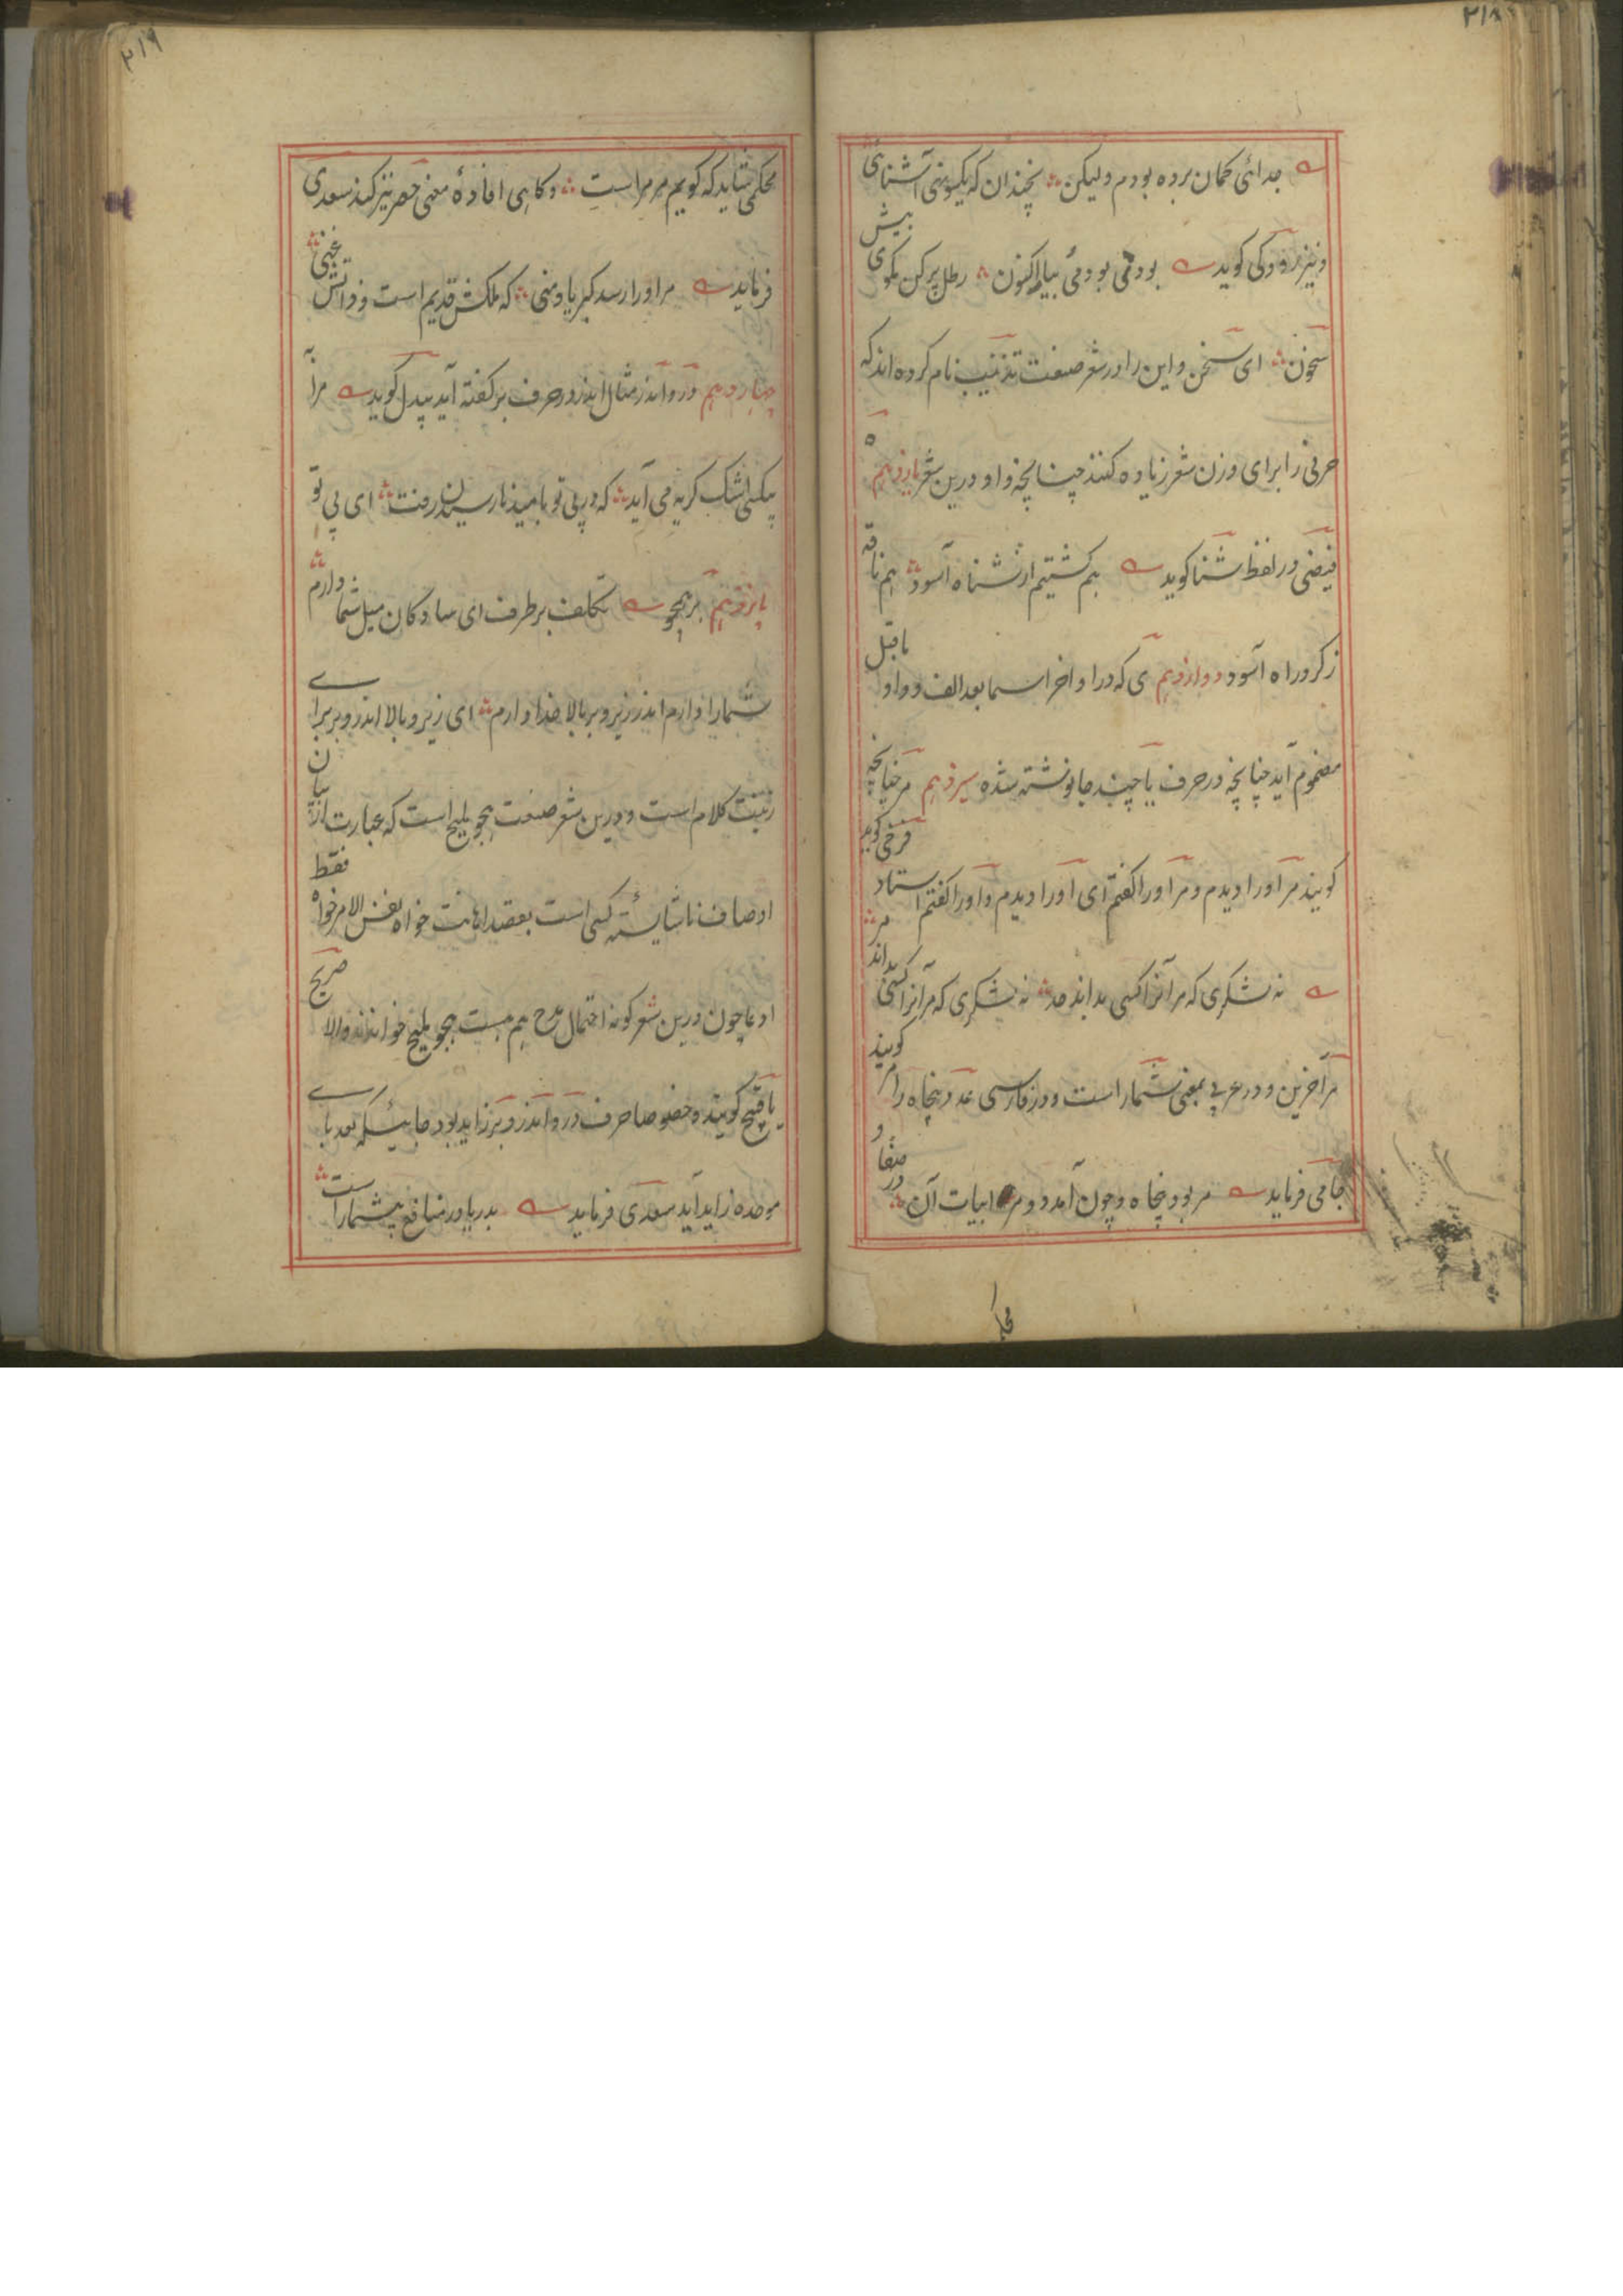 ۲۱۸
جدائی گمان برده بودم ولیکن نچندان که یکسو نهی آشنائی
و نیز رودکی گوید بودنی بود می بیار اکنون رطل پرکن مگوی بیش
سخون ای سخن و این را در شعر صنعت تذنیب نام کرده اند که
حرفی را برای وزن شعر زیاده کنند چنانچه واو درین شعر یازدهم ه
فیضی در لفظ شنا گوید هم کشتیم از شناه آسود هم ناقه
ز کرد راه آسود دوازدهم ی که در اواخر اسما بعد الف و واو ماقبل
مضموم آید چنانچه در حرف یا چند جا نوشته شده سیزدهم مر چنانچه
گویند مر او را دیدم و مر او را گفتم ای او را دیدم و او را گفتم استاد فرخی گوید
نه شکری که مر آنرا کسی بداند حد نه شکری که مر آنرا کسی بداند مر
مر آخرین و در عربی بمعنی شمار است و در فارسی عدد پنجاه را مر گویند
جامی فرماید مر بود پنجاه و چون آمد دو مر ابیات آن در صفا و
۲۱۹
محکمی شاید که گویم مر مراست و گاهی افادهٔ معنی حصر نیز کند سعدی
فرماید مر او را رسد کبریا و منی که ملکش قدیم است و ذاتش غنی
چهاردهم در و اندر مثال اندر در حرف بر گفته آید بیدل گوید مرا
بیکسی اشک گریه می آید که در پی تو بامید نارسیدن رفت ای پی تو
پانزدهم بر همچو تکلف برطرف ای ساده کان میل شما دارم
شما را دارم اندر زیر و بر بالا خدا دارم ای زیر و بالا اندر و بر برای
زینت کلام است و درین شعر صنعت هجو ملیح است که عبارت از بیان
اوصاف ناشایستهٔ کسی است بقصد اهانت خواه بنفس الامر خواه فقط
ادعا چون درین شعر گونه احتمال مدح هم هست هجو ملیح خوانند و الا صریح
یا قبیح گویند و خصوصا حرف در و اندر و بر زاید بود جائیکه بعد بای
موحده زاید آید سعدی فرماید بدریا در منافع بیشمار است